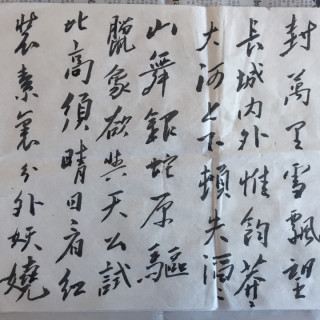 封萬里雪飄望
長城内外惟餘莽々
大河上下頓失滔々
山舞銀蛇原驅
臘象欲與天公試
比高須晴日看紅
裝素裹分外妖嬈